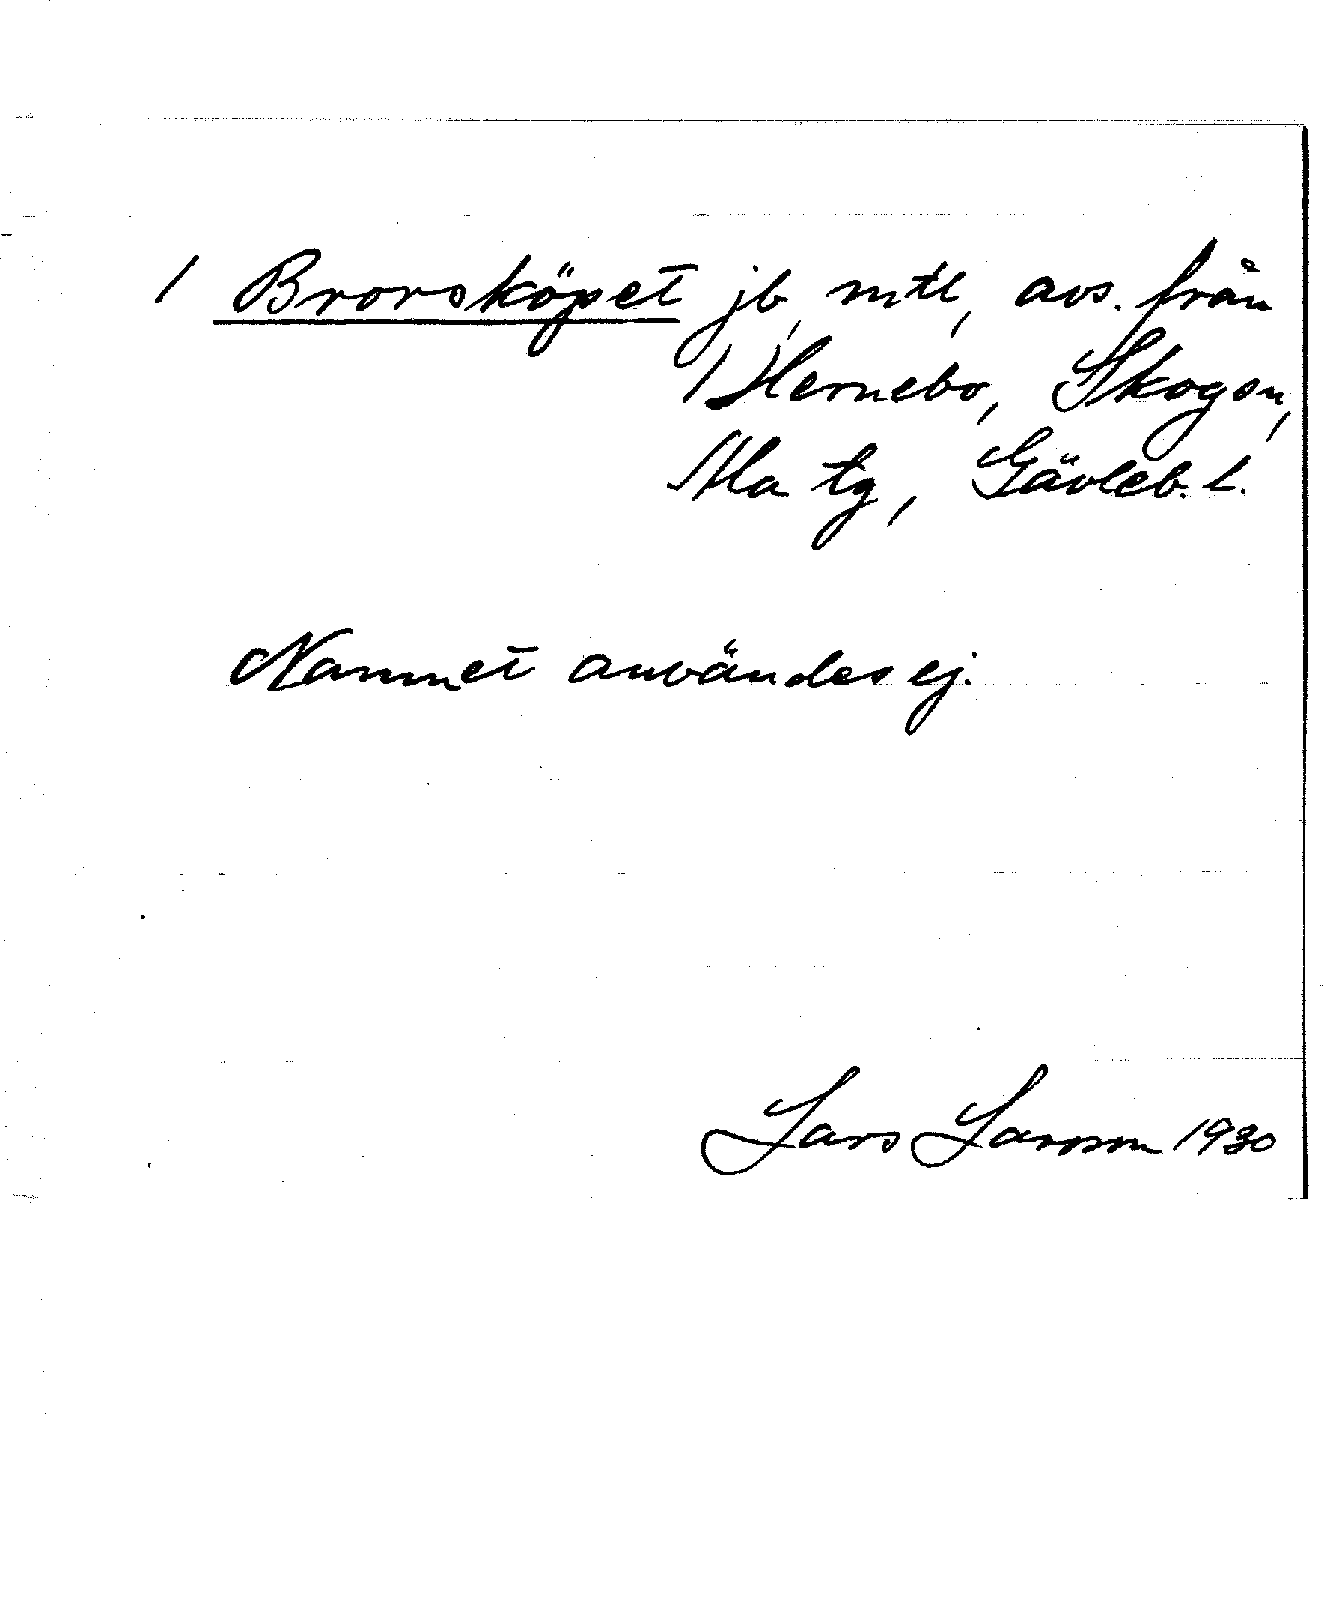 1 Brorsköpet jb, mtl, avs. från
1 Hernebo, Skogson,
Ala tg, Gävleb. l.
Namnet användes ej.
Lars Larsson 1930